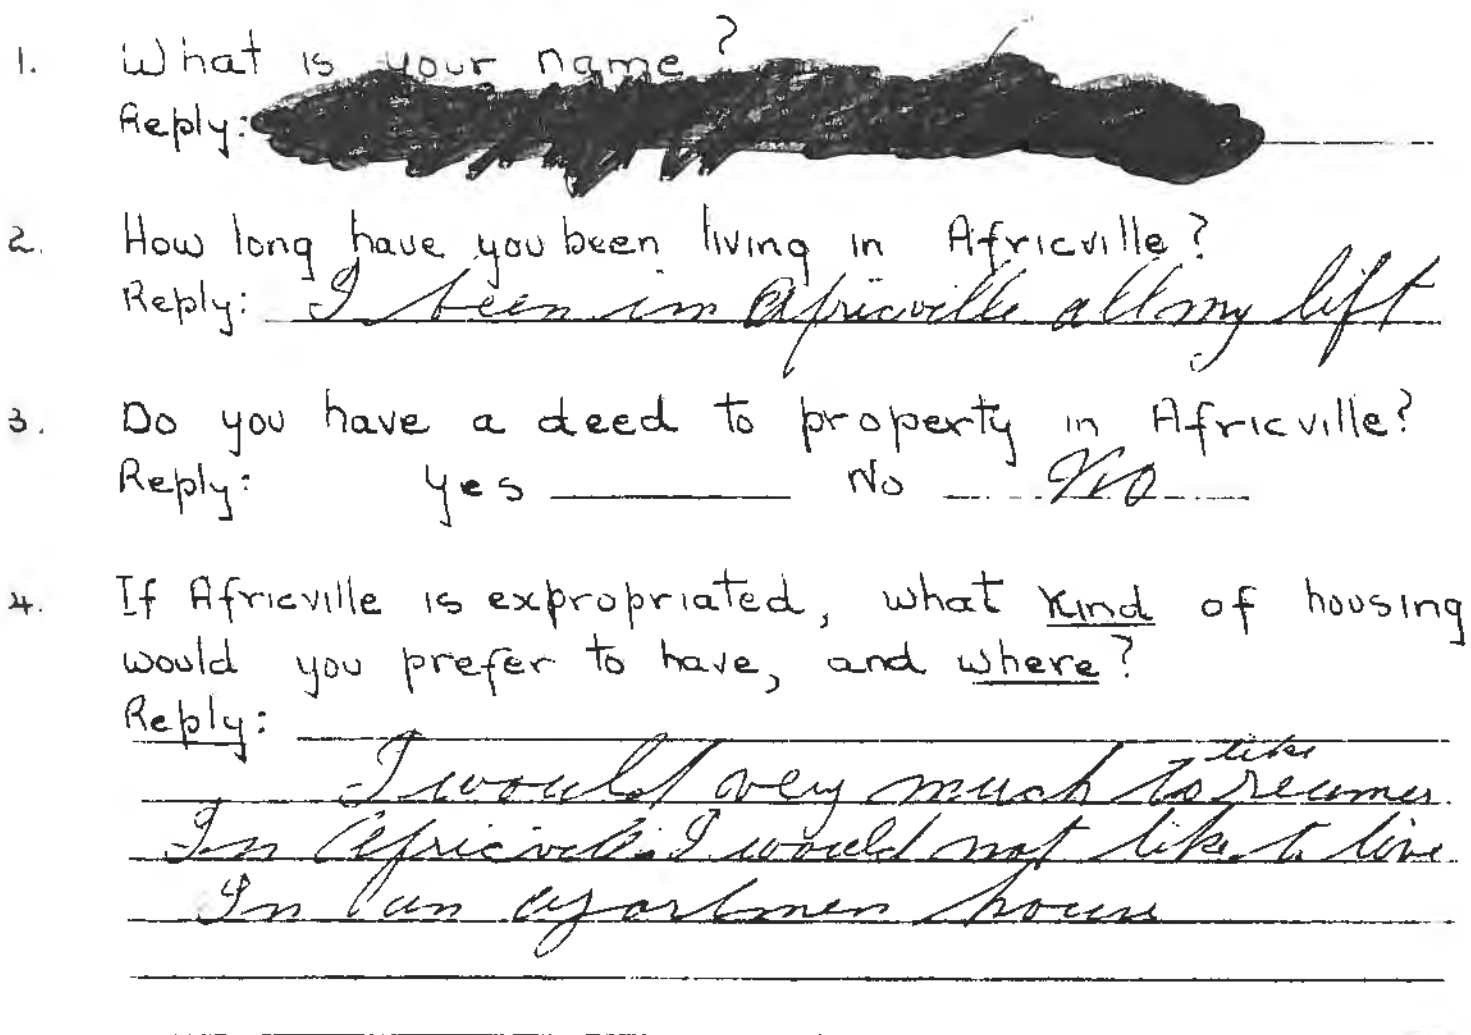 1. What is your name?
Reply:
2. How long have you been living in Africville?
Reply: I been in Africville all my lift
3. Do you have a deed to property in Africville?
Reply: yes No No
4. If Africville is expropriated, what kind of housing
would you prefer to have, and where?
Reply:
like
I would very much to
In Africville I would not like to live
In an apartmen house